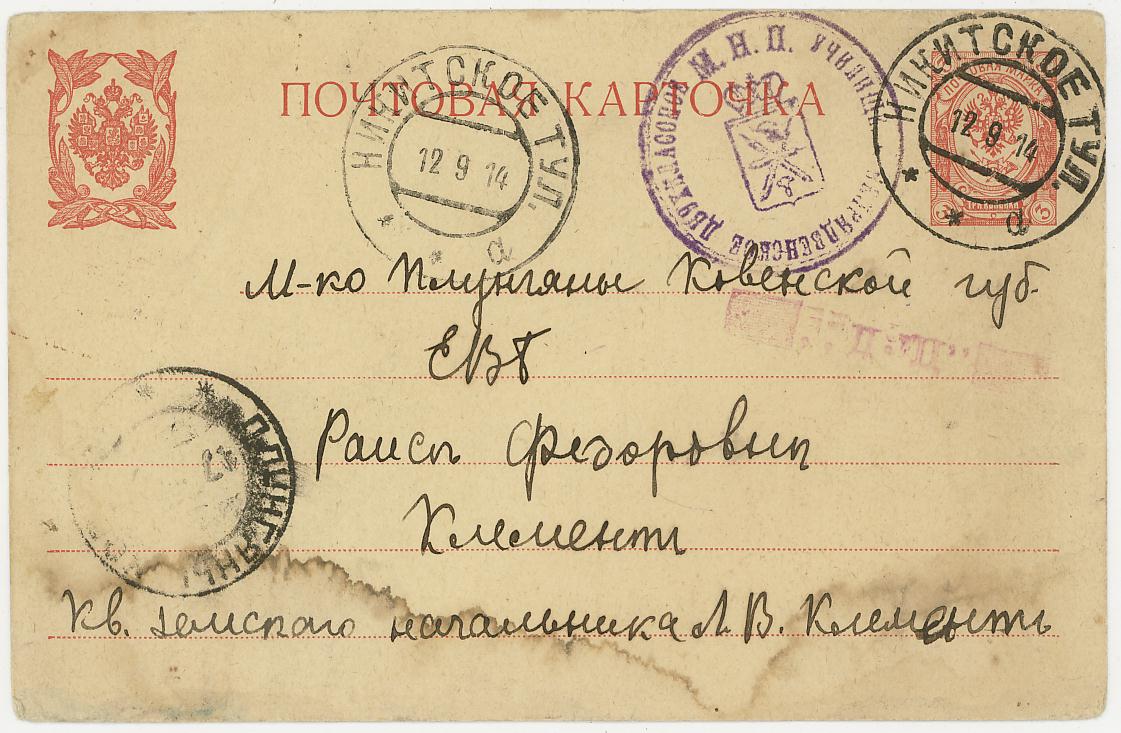 ПОЧТОВАЯ КАРТОЧКА
НИКИТСКОЕ ТУЛ.
12 9 14
а
М. Н. П.
НИКИТСКОЕ ТУЛ.
12 9 14
а
М-ко Плунгяны Ковенской губ.
ЕВБ
Раисы Федоровны
Клементь
Кв. земского начальника Л. В. Клементь
ПЛУНГЯНЫ